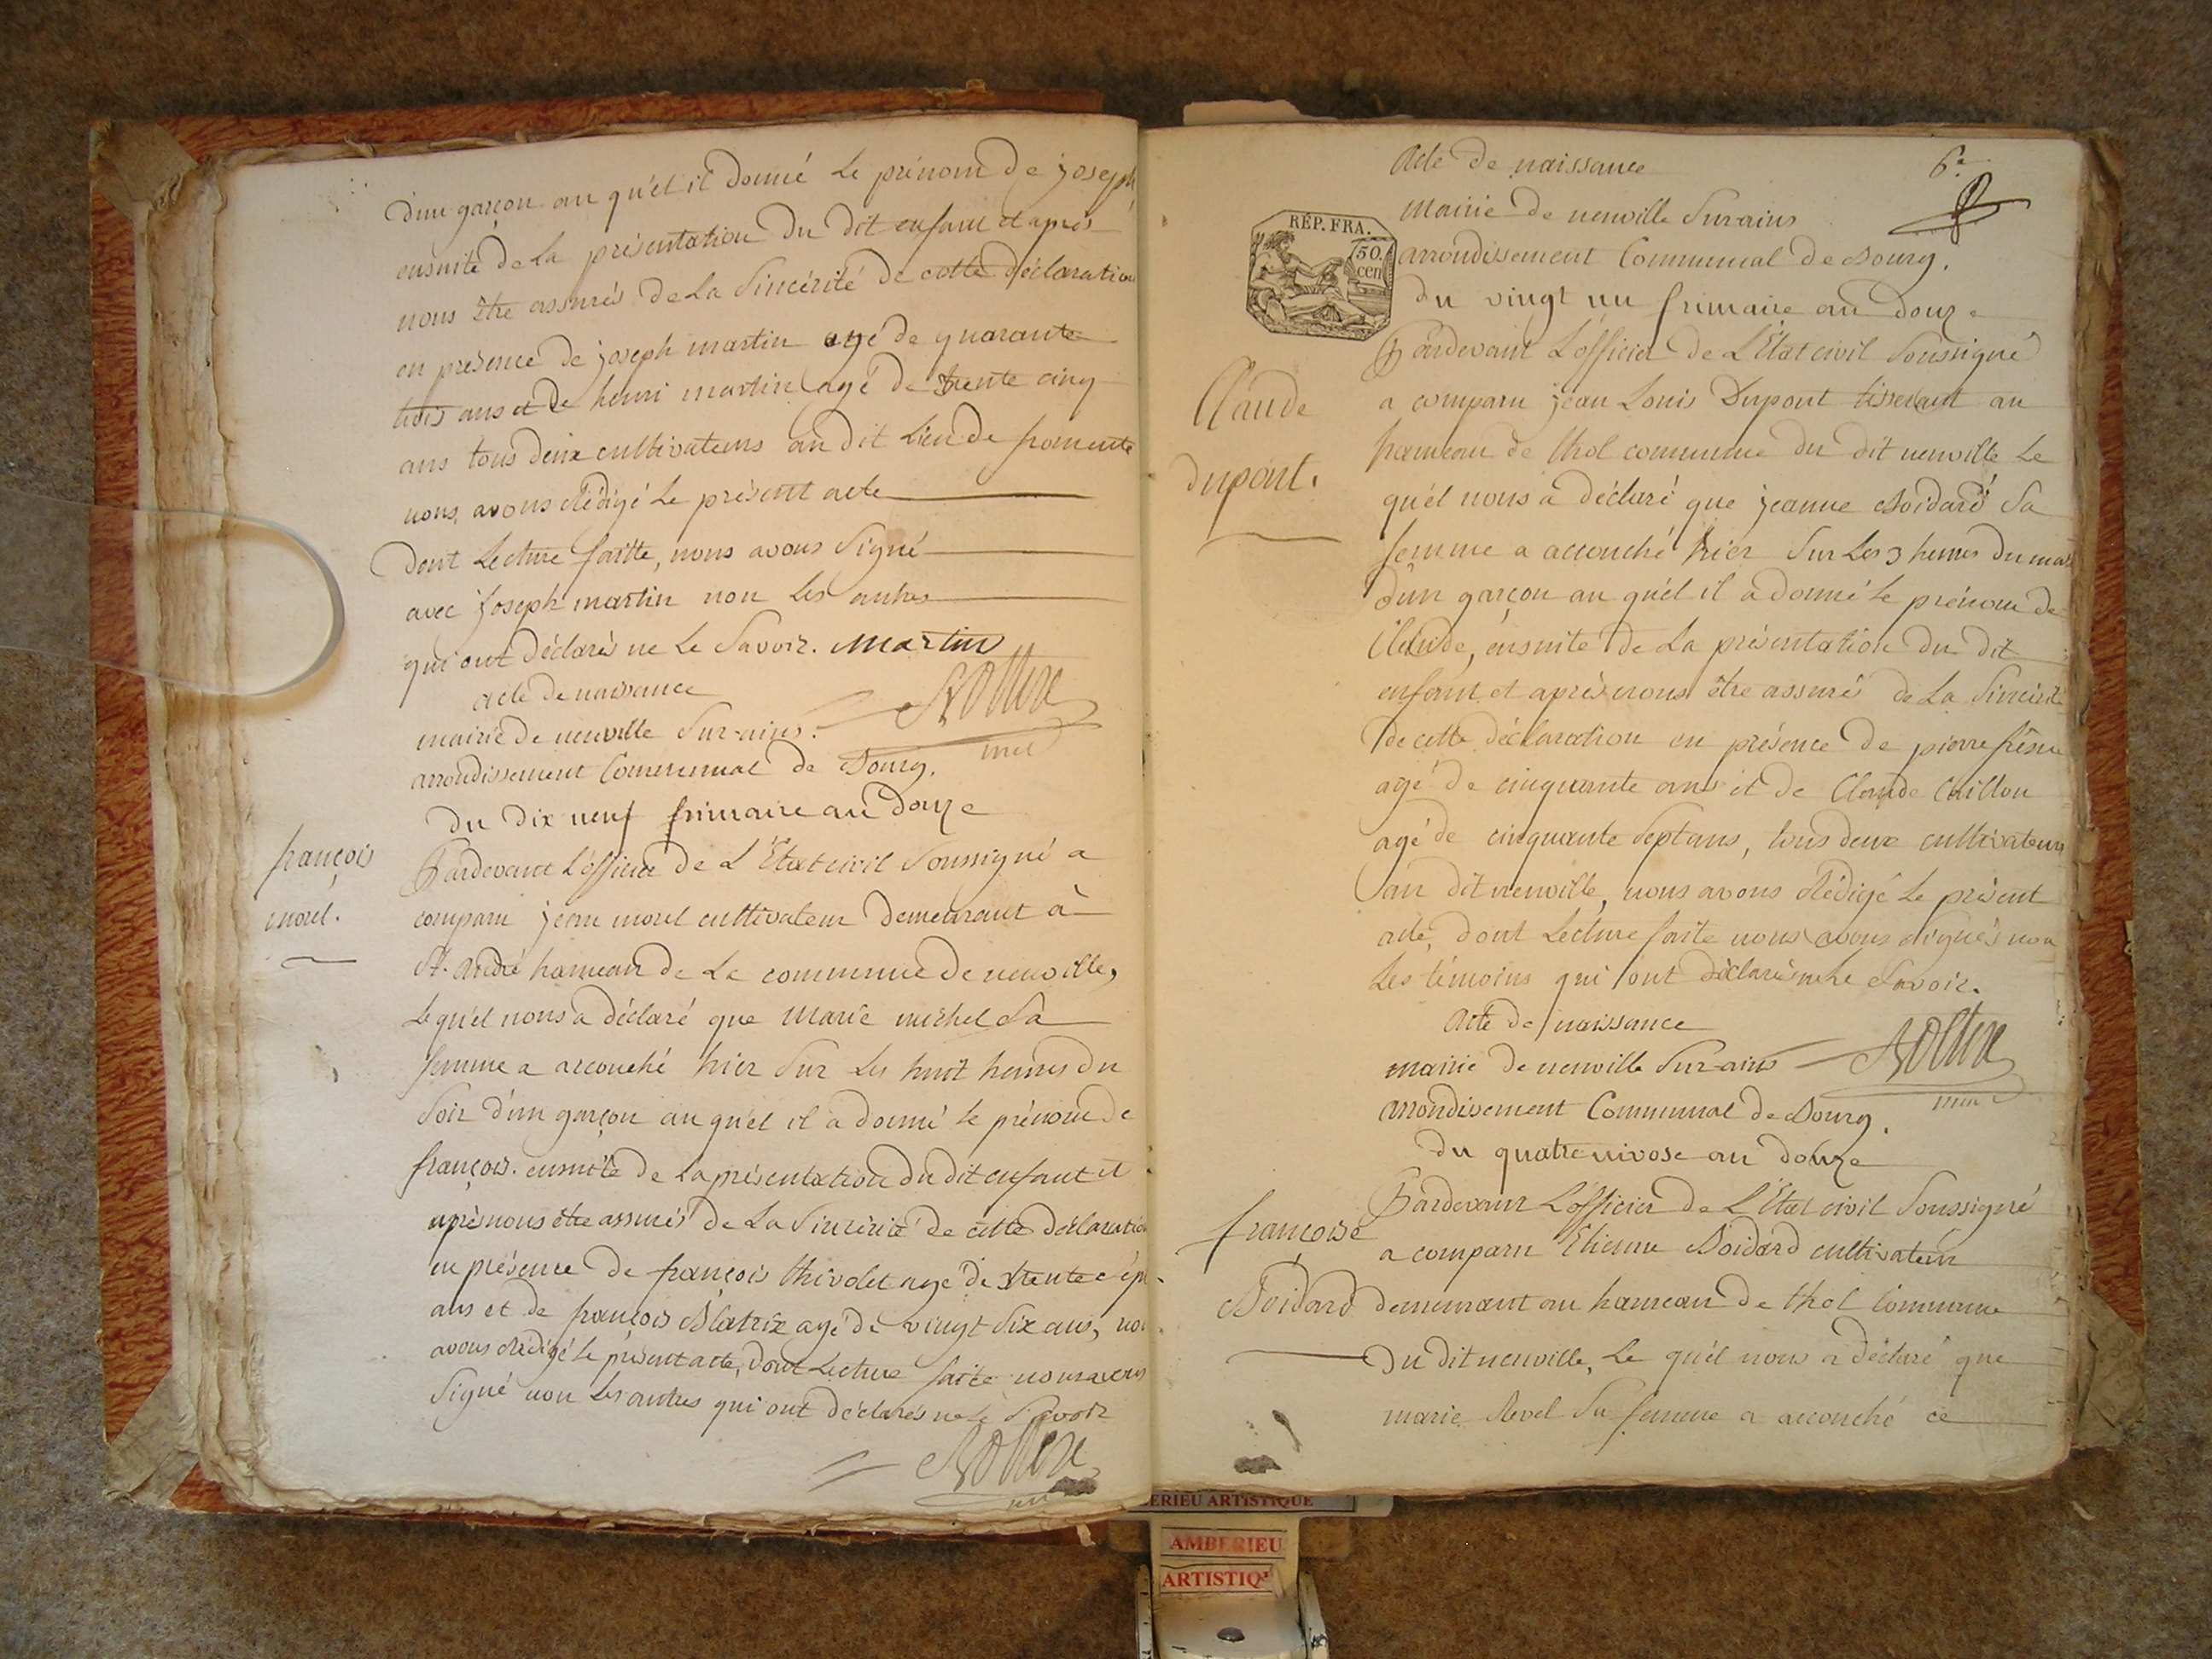 d'un garçon au qu'el il donné le prénom de joseph
ensuite de la présentation du dit enfant et après
nous être assurés de la sincérité de cette déclaration
en présence de joseph martin agé de quarante
trois ans et de henri martin agé de trente cinq
ans tous deux cultivateurs au dit lieu de fromente
nous avons rédigé le présent acte
dont lecture faitte, nous avons signé
avec joseph martin non les autres
qui ont déclarés ne le savoir. martin
acte de naissance
mairie de neuville sur-ains.
arrondissement Communal de Bourg.
du dix neuf frimaire an douze
françois
morel.
Pardevant l'officier de l'Etat civil soussigné a
comparu jean morel cultivateur demeurant à
St. André hameau de la commune de neuville,
le qu'el nous a déclaré que Marie michel sa
femme a accouché hier sur les huit heures du
soir d'un garçon au qu'el il a donné le prénom de
françois. ensuite de la présentation du dit enfant et
après nous être assurés de la sincérité de cette déclaration
en présence de françois thivolet agé de trente sept
ans et de françois Blatrix agé de vingt six ans, nous
avons rédigé le présent acte, dont lecture faite nous avons
signé non les autres qui ont déclarés ne le savoir
Acte de naissance
6e
Mairie de neuville sur ains
RÉP. FRA.
50.
cen
arrondissement Communal de Bourg.
du vingt un frimaire an douze
Claude
dupont.
Pardevant l'officier de l'Etat civil soussigné
a comparu jean Louis Dupont tisserant au
hameau de thol commune du dit neuville le
qu'el nous a déclaré que jeanne Boidard sa
femme a accouché hier sur les 3 heures du mat
d'un garçon au qu'el il a donné le prénom de
Claude, ensuite de la présentation du dit
enfant et après nous être assurés de la sincérité
de cette déclaration en présence de pierre
agé de cinquante ans et de Claude Caillon
agé de cinquante sept ans, tous deux cultivateurs
au dit neuville, nous avons rédigé le présent
acte, dont lecture faite nous avons signés non
les témoins qui ont déclarés ne le savoir.
Acte de naissance
mairie de neuville sur-ains
arrondissement Communal de Bourg.
du quatre nivose an douze
françoise
Boidard
Pardevant l'officier de l'Etat civil soussigné
a comparu Etienne Boidard cultivateur
demeurant au hameau de thol commune
du dit neuville, le qu'el nous a déclaré que
marie Revel sa femme a accouché ce
ERIEU ARTISTIQUE
AMBERIEU
ARTISTIQ